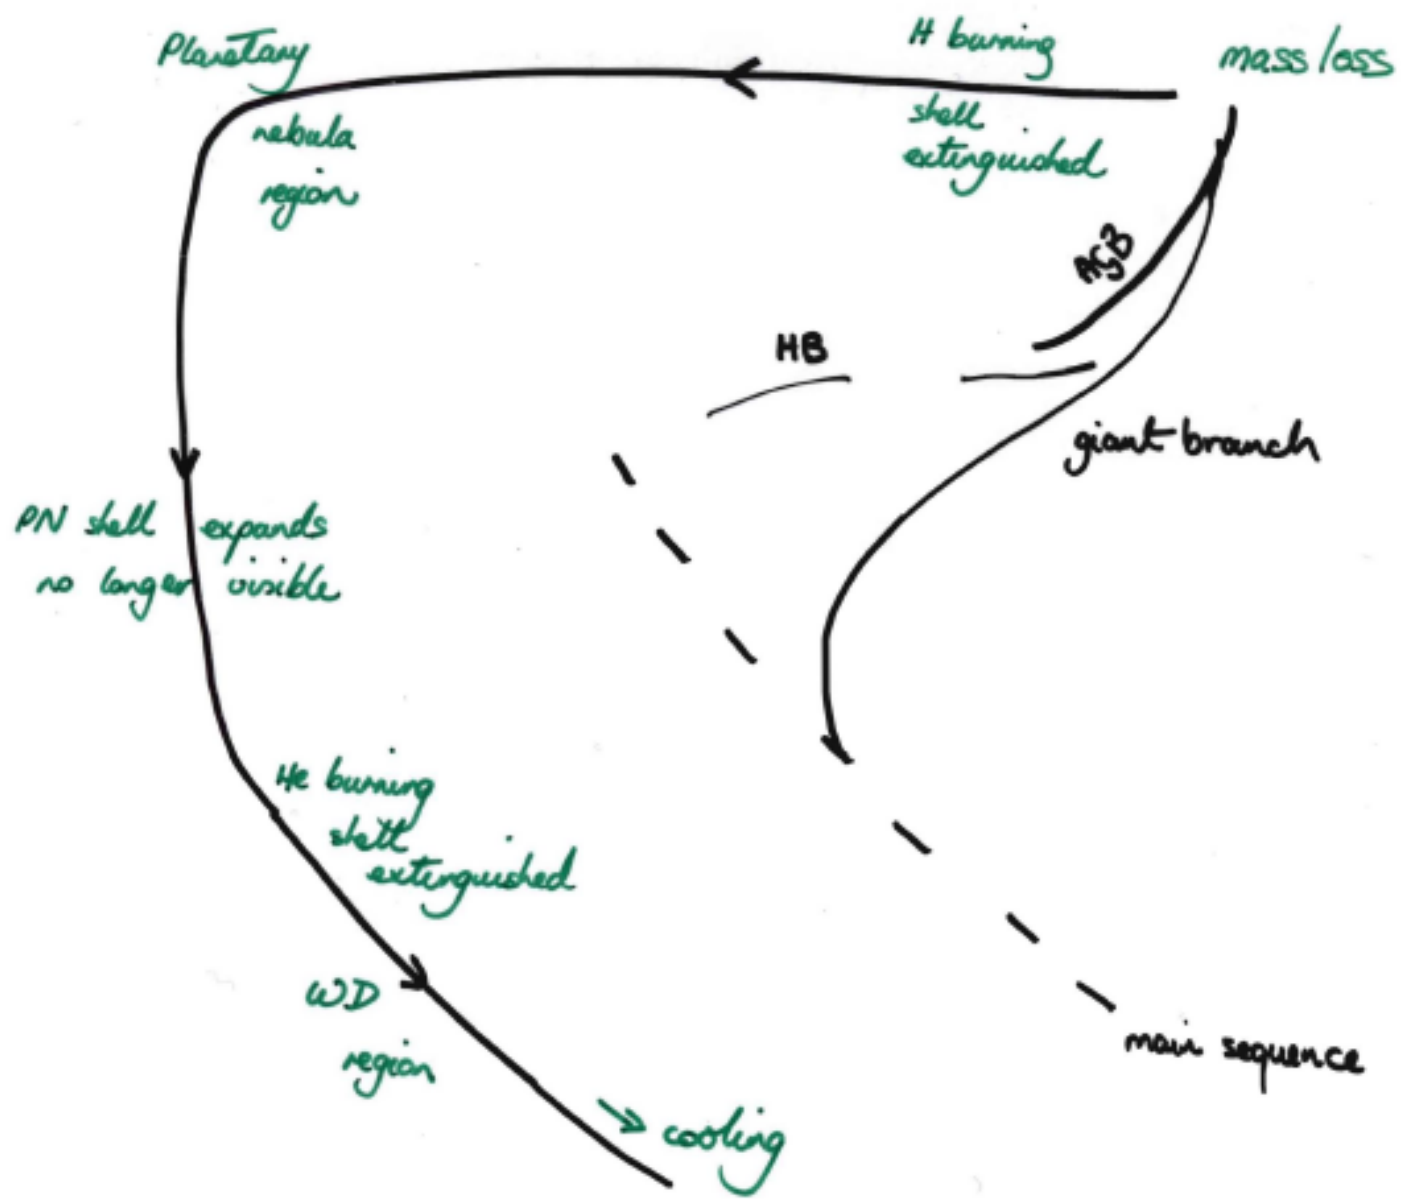 Planetary
nebula
region
H burning
shell
extinguished
mass loss
AGB
HB
giant branch
PN shell expands
no longer visible
He burning
shell
extinguished
WD
region
main sequence
cooling